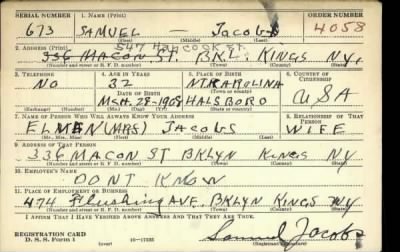 SERIAL NUMBER 1. NAME (Print) ORDER NUMBER
673 SAMUEL — JACOBS 4058
(First) (Middle) (Last)
547 HANCOCK ST.
2. ADDRESS (Print)
336 MACON ST. BKL. KINGS NY,
(Number and street or R. F. D. number) (Town) (County) (State)
3. TELEPHONE 4. AGE IN YEARS 5. PLACE OF BIRTH 6. COUNTRY OF CITIZENSHIP
NO 32 NTH CAROLINA
DATE OF BIRTH
MCH. 28-1908 HALSBORO USA
(Exchange) (Number) (Mo.) (Day) (Yr.) (State or country)
7. NAME OF PERSON WHO WILL ALWAYS KNOW YOUR ADDRESS 8. RELATIONSHIP OF THAT PERSON
(MRS) JACOBS WIFE
(Mr., Mrs., Miss) (First) (Middle) (Last)
9. ADDRESS OF THAT PERSON
336 MACON ST BKLYN KINGS NY
(Number and street or R. F. D. number) (Town) (County) (State)
10. EMPLOYER'S NAME
DONT KNOW
11. PLACE OF EMPLOYMENT OR BUSINESS
474 Flushing AVE. BKLYN KINGS NY
(Number and street or R. F. D. number) (Town) (County) (State)
I AFFIRM THAT I HAVE VERIFIED ABOVE ANSWERS AND THAT THEY ARE TRUE.
REGISTRATION CARD
D. S. S. Form 1 16—17105 Samuel Jacobs